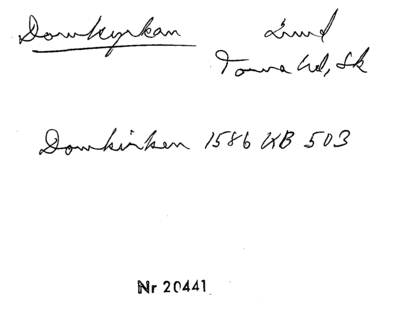 Domkyrkan Lund
Torna hd, Sk
Domkirken 1586 KB 503
Nr 20441